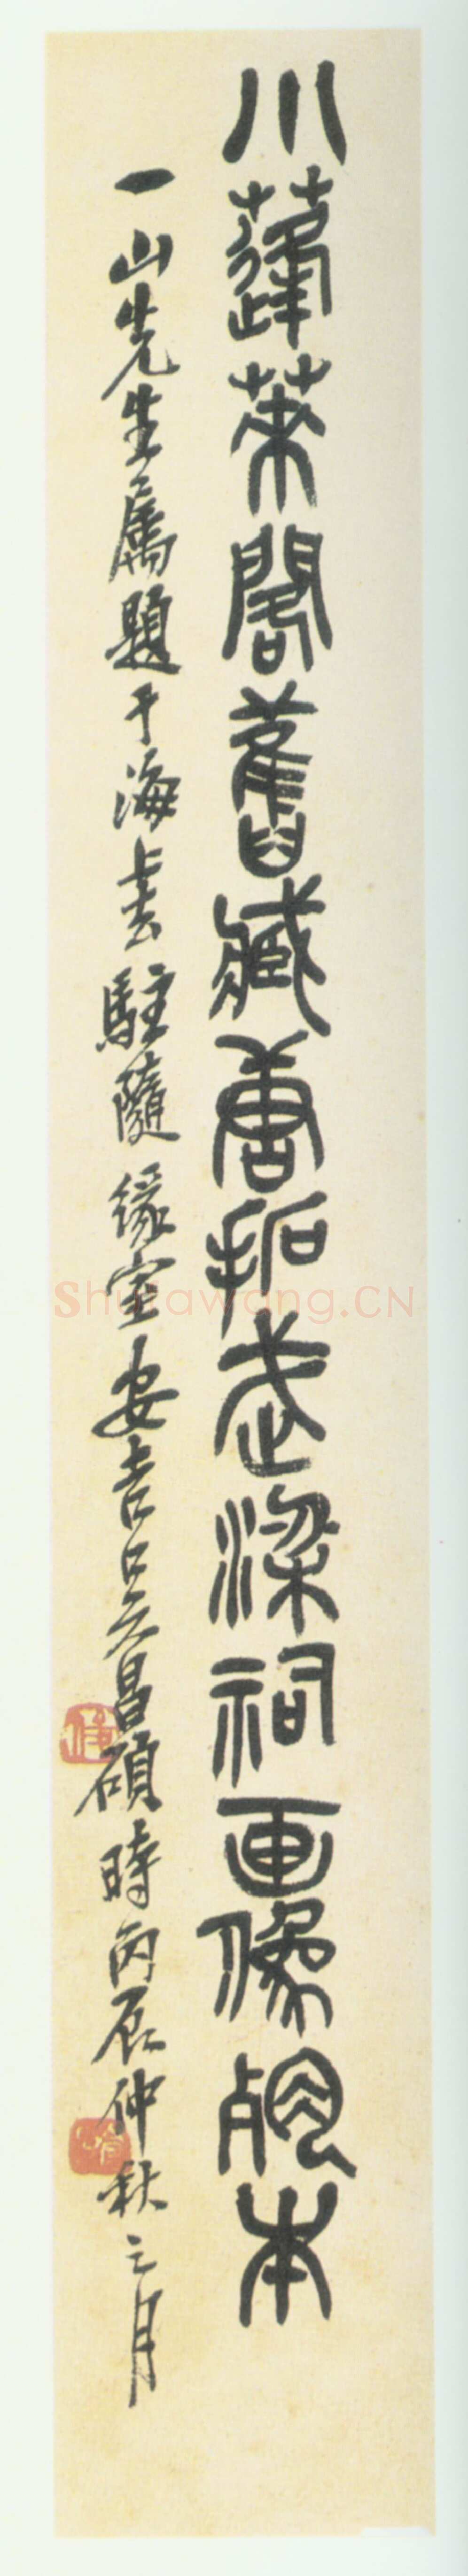 小蓬莱閣舊臧唐拓武梁祠画像本
一山先生屬題于海上去駐隨緣室安吉吳昌碩時丙辰仲秋之月
Shufawang.CN